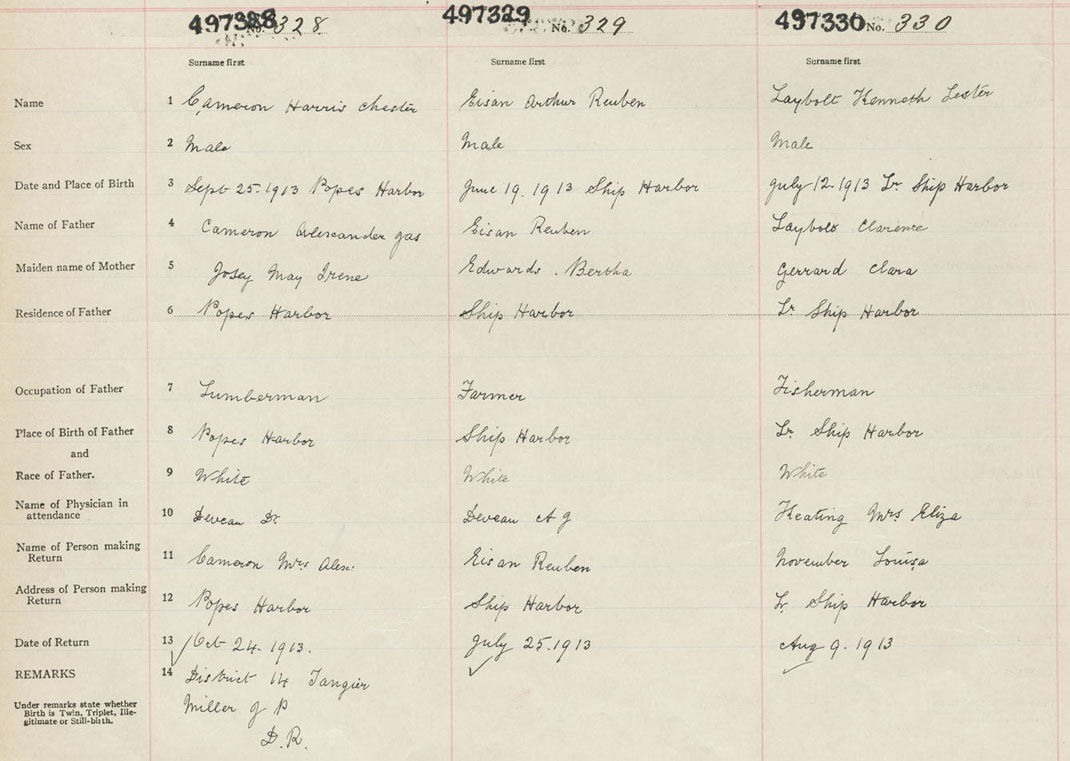 497328 No. 328 497329 No. 329 497330 No. 330
Surname first Surname first Surname first
Name 1 Cameron Harris Chester Eisan Arthur Reuben Laybolt Kenneth Lester
Sex 2 Male Male Male
Date and Place of Birth 3 Sept 25.1913 Popes Harbor June 19.1913 Ship Harbor July 12.1913 Lr Ship Harbor
Name of Father 4 Cameron Alexander Jas Eisan Reuben Laybolt Clarence
Maiden name of Mother 5 Josey May Irene Edwards. Bertha Gerrard Clara
Residence of Father 6 Popes Harbor Ship Harbor Lr Ship Harbor
Occupation of Father 7 Lumberman Farmer Fisherman
Place of Birth of Father 8 Popes Harbor Ship Harbor Lr Ship Harbor
and
Race of Father. 9 White White White
Name of Physician in
attendance 10 Deveau Dr Deveau A J Keating Mrs Eliza
Name of Person making
Return 11 Cameron Mrs Alex. Eisan Reuben November Louisa
Address of Person making
Return 12 Popes Harbor Ship Harbor Lr Ship Harbor
Date of Return 13 Oct 24.1913. July 25.1913 Aug 9.1913
REMARKS 14 District 14 Tangier
Under remarks state whether
Birth is Twin, Triplet, Ille-
gitimate or Still-birth.
Miller J P
D.R.